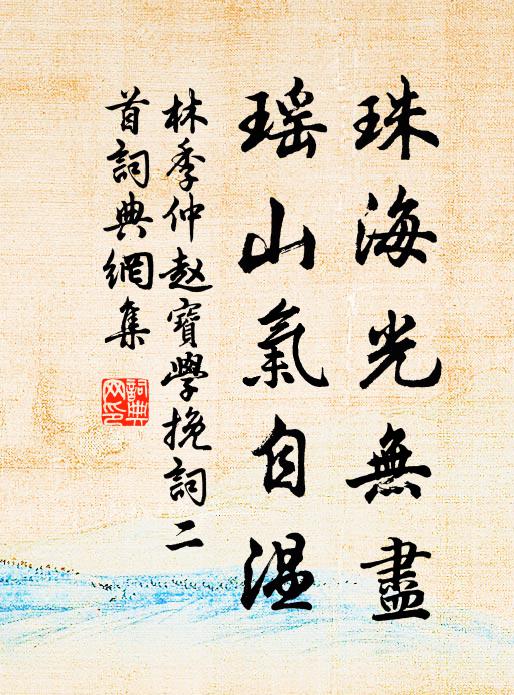 珠海光無盡
瑶山氣自温
林季仲赵寶學挽詞二
首詞典網集
詞典
网印